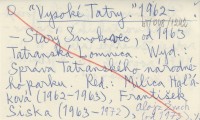 "Vysoké Tatry." 1962-
- Starý Smokovec, od 1963
Tatranská Lomnica. Vyd.:
Správa Tatranského národné-
ho parku. Red.: Milica Haľá-
ková (1962-1963), František
Šiška (1963-1972),